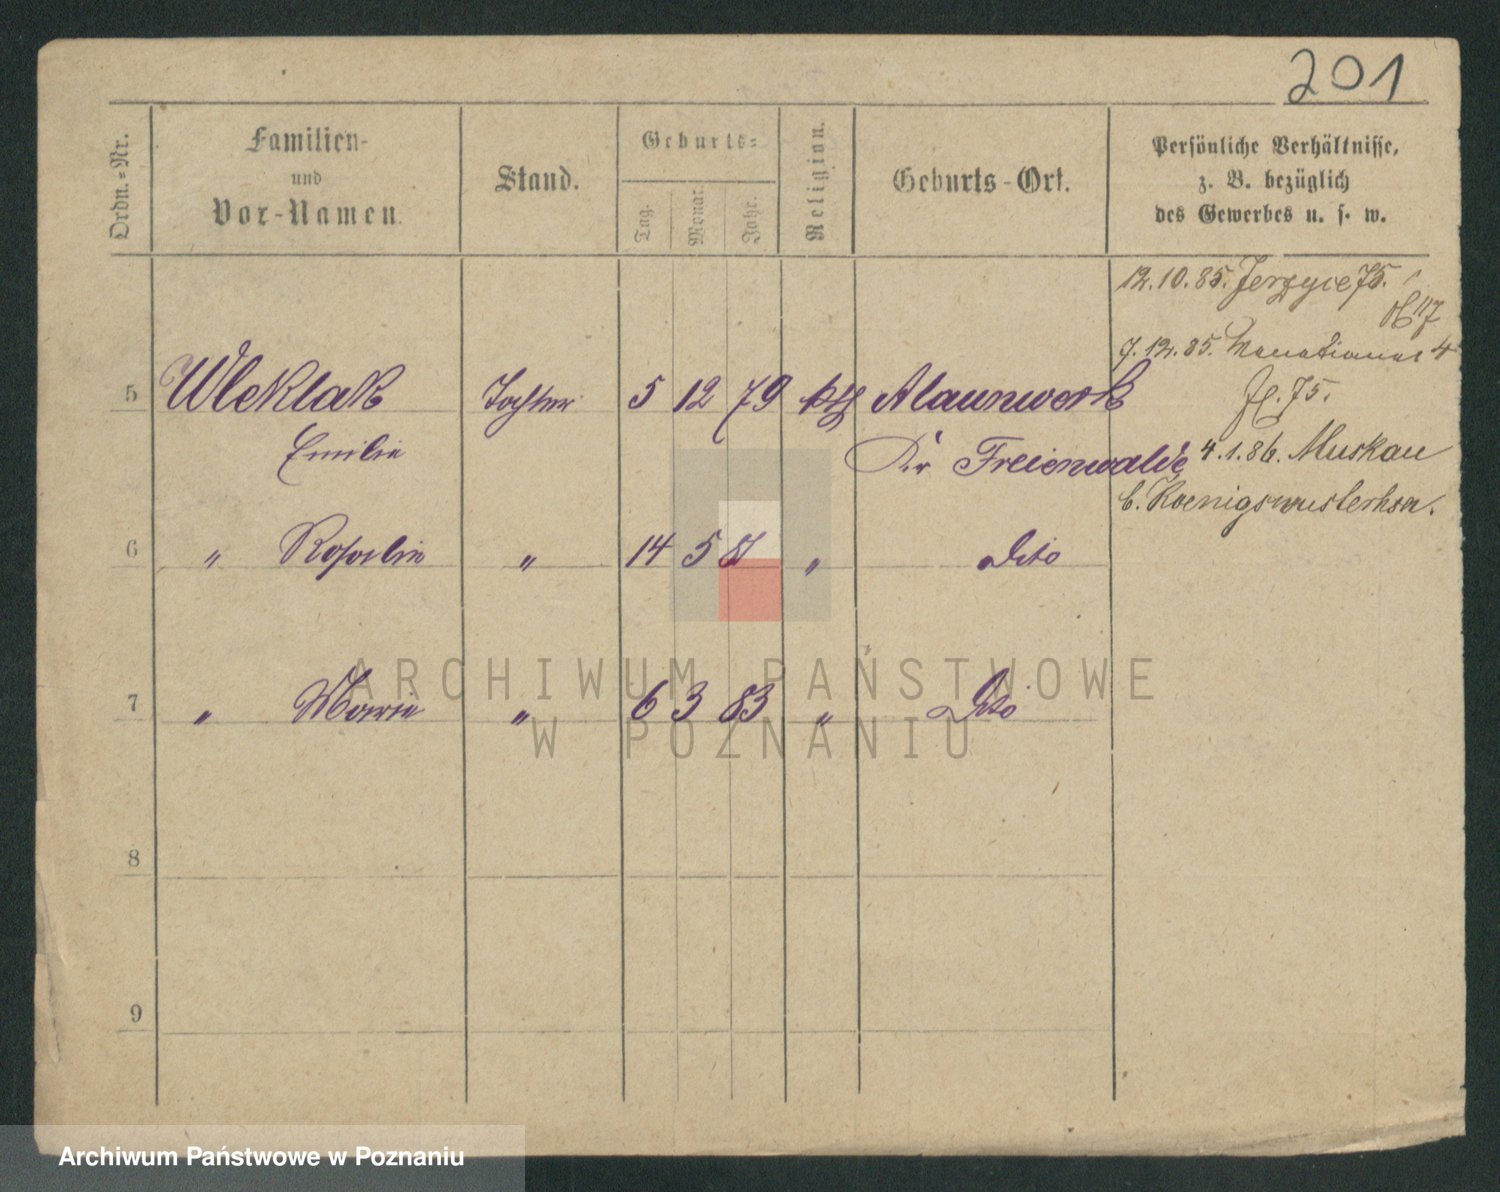 201
Ordn.-Nr.
Familien-
und
Vor-Namen.
Stand.
Geburts-
Tag.
Monat.
Jahr.
Religion.
Geburts-Ort.
Persönliche Verhältnisse,
z. B. bezüglich
des Gewerbes u. s. w.
12.10.85. Jerzyce 75.
7.12.85. 4
Fl. 75.
5 Wleklak Tochter 5 12 79 kth Alaunwerk
Emilie Kr Freienwalde
4.1.86. Muskau
b. Koenigswusterhsn.
6 " Rosalie " 14 5 81 " dito
7 " Marie " 6 3 83 " Dito
8
9
ARCHIWUM PAŃSTWOWE
W POZNANIU
Archiwum Państwowe w Poznaniu